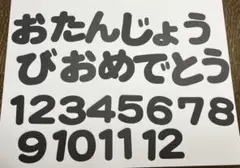 おたんじょう
びおめでとう
12345678
9101112